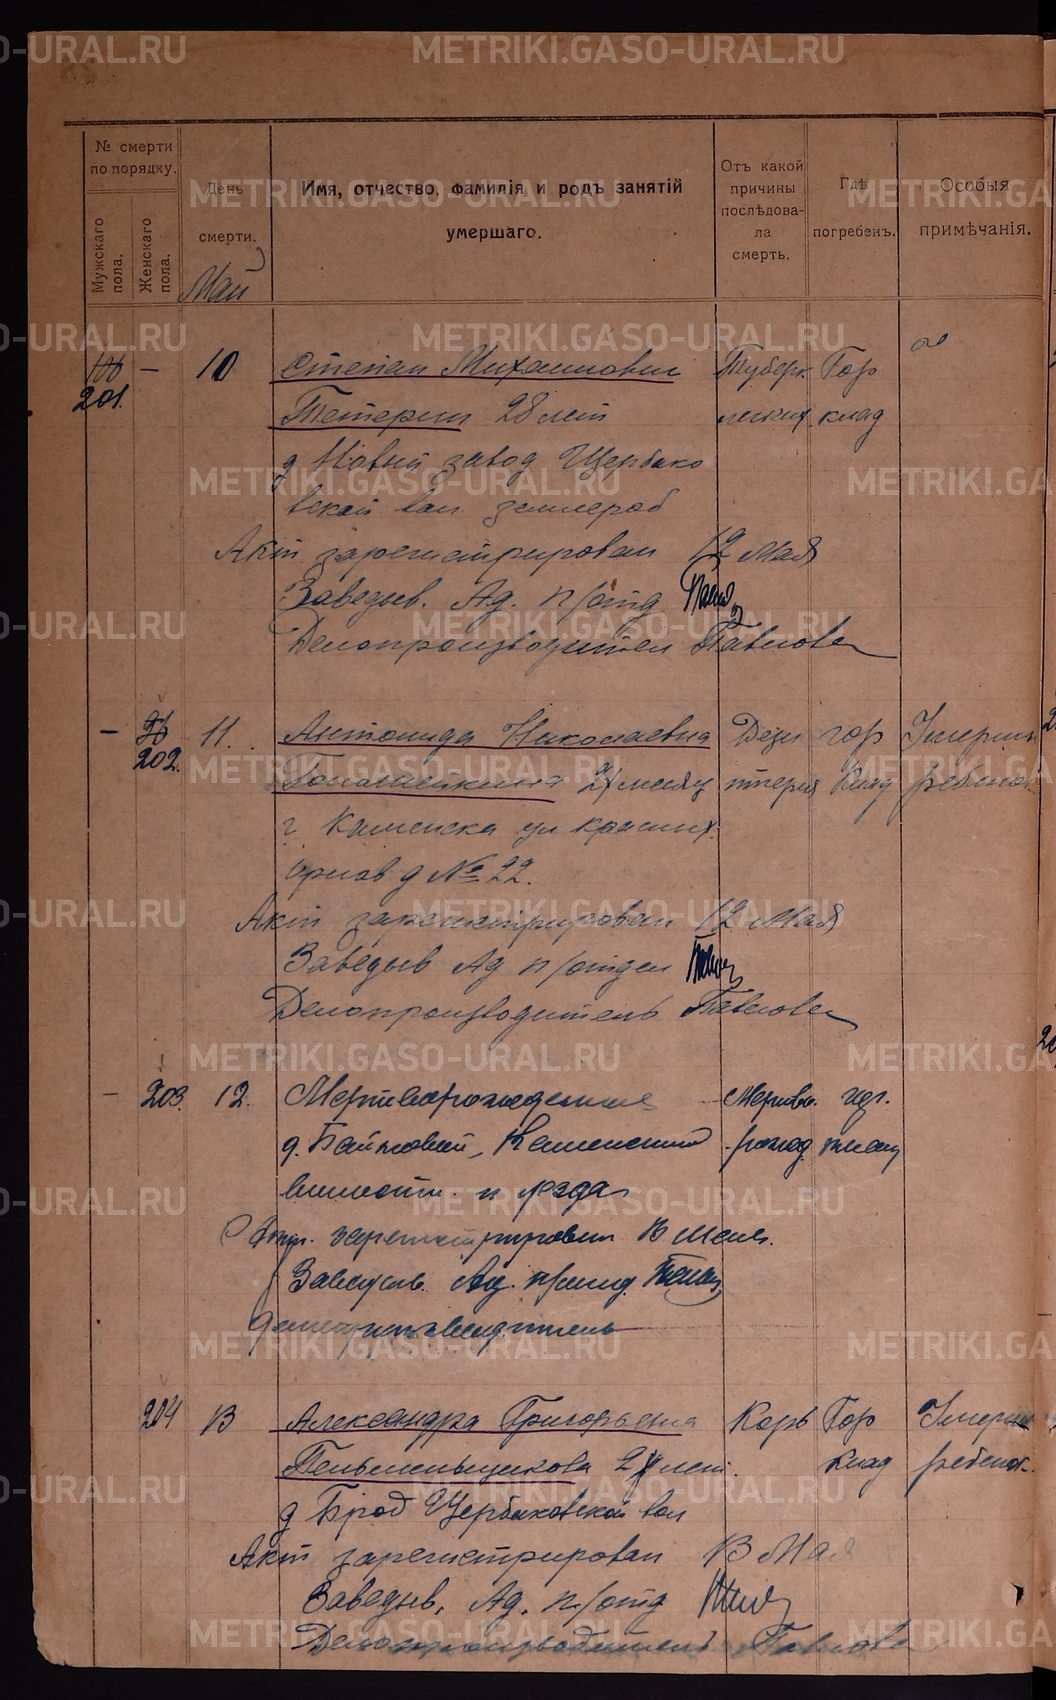 № смерти
по порядку.
Мужскаго
пола.
Женскаго
пола.
День
смерти.
Май
Имя, отчество, фамилія и родъ занятій
умершаго.
Отъ какой
причины
послѣдова-
ла
смерть.
Гдѣ
погребенъ.
Особыя
примѣчанія.
201. — 10 Степан Михайлович Туберк. Гор
Тетерин 28 лет легких клад
д Новый завод Щербако
вской вол землероб
Акт зарегистрирован 12 Мая
Заведыв. Ад. п/отд
Делопроизводител Павлова
— 202. 11. Антонида Николаевна Дези гор Умерши
2 месяц нтерия Клад ребенок
г Каменска ул Красных
орлов д № 22.
Акт зарегистрирован 12 Мая
Заведыв Ад п/отдел
Делопроизводитель Павлова
— 203. 12. Мертворожденные Мертво. гор.
д. Байновой, Каменский рожд. клад
волости и уезда
Акт. зарегистрирован 13 Мая.
Заведыв. Ад. п/отд.
Делопроизводитель
204 13 Александра Григорьевна Корь Гор Умерш
Пельменьщикова 2 лет. клад ребенок.
д Брод Щербаковской вол
Акт зарегистрирован 13 Мая
Заведыв. Ад. п/отд
Делопроизводитель Павлова
METRIKI.GASO-URAL.RU